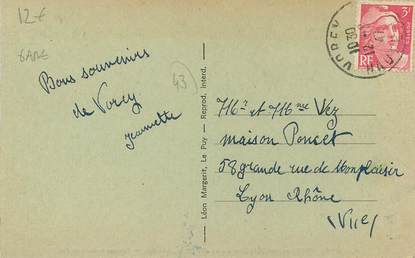 12€
GARE
43
Bons souvenirs
de Vorey
Jeannette
Léon Margerit, Le Puy — Reprod. interd.
3F
RF
VOREY
1030
12
Mr et Mme Vez
maison Poncet
58 grande rue de Monplaisir
Lyon Rhône